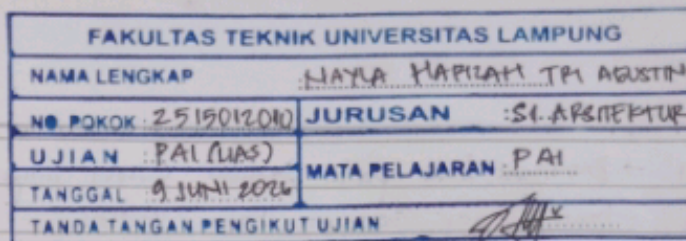 FAKULTAS TEKNIK UNIVERSITAS LAMPUNG
NAMA LENGKAP : NAYLA HAFIZAH TRI AGUSTIN
NO POKOK : 2515012010 JURUSAN : S1. ARSITEKTUR
UJIAN : PAI (UAS) MATA PELAJARAN : PAI
TANGGAL 9 JUNI 2026
TANDA TANGAN PENGIKUT UJIAN